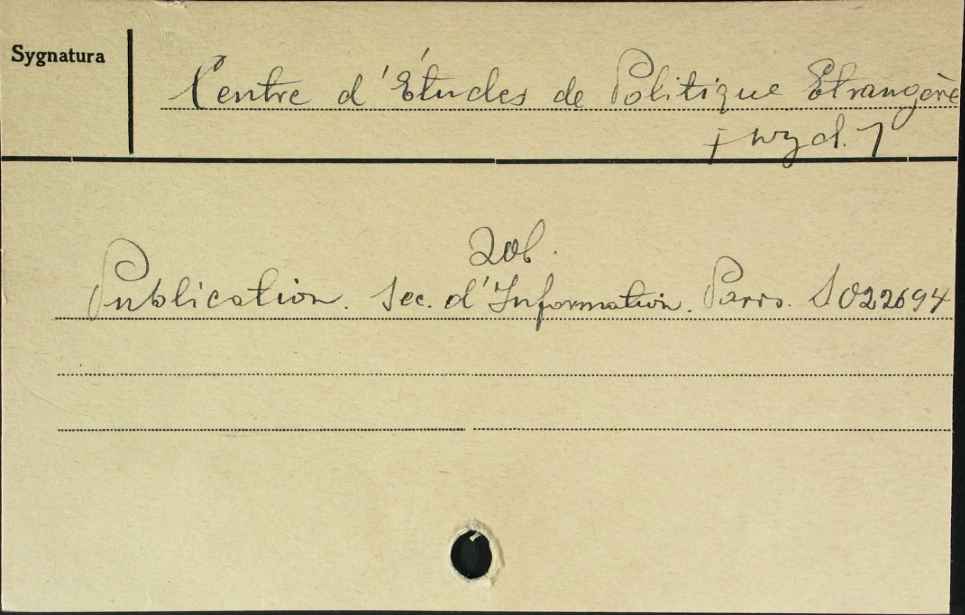 Sygnatura
Centre d'Études de Politique Étrangère
[wyd.]
Zob.
Publication. Sec. d'Information. Paris. S022694